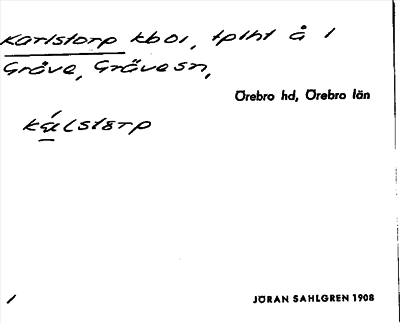 Karlstorp kbol, tplht å 1
Gråve, Gräve sn,
Örebro hd, Örebro län
JÖRAN SAHLGREN 1908